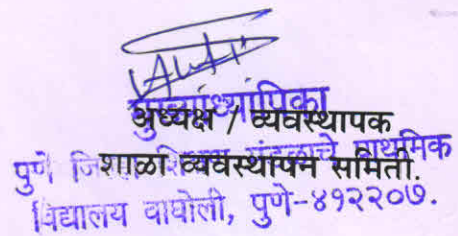 मुख्याध्यापिका
अध्यक्ष / व्यवस्थापक
शाळा व्यवस्थापन समिती.
पुणे जिल्हा शिक्षण मंडळाचे प्राथमिक
विद्यालय वाघोली, पुणे-४१२२०७.